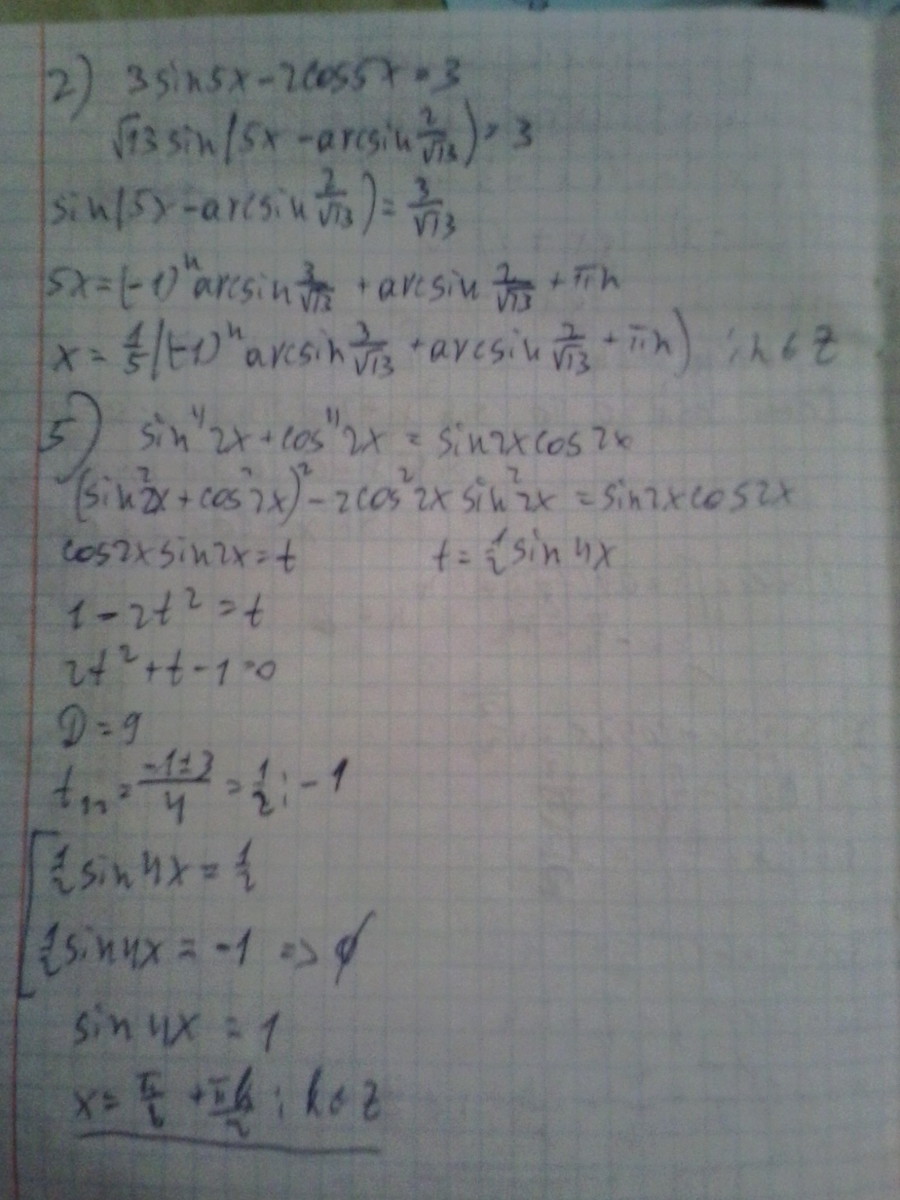 2) 3sin5x-2cos5x=3
√13 sin(5x-arcsin 2/√13)=3
sin(5x-arcsin 2/√13)=3/√13
5x=(-1)ⁿarcsin 3/√13 +arcsin 2/√13 +πn
x=1/5((-1)ⁿarcsin 3/√13 +arcsin 2/√13 +πn) ; n∈Z
5) sin⁴2x+cos⁴2x=sin2xcos2x
(sin²2x+cos²2x)²-2cos²2xsin²2x=sin2xcos2x
cos2xsin2x=t t=1/2sin4x
1-2t²=t
2t²+t-1=0
D=9
t₁,₂=(-1±3)/4=1/2;-1
[1/2sin4x=1/2
1/2sin4x=-1 => ∅
sin4x=1
+πk/2; k∈Z